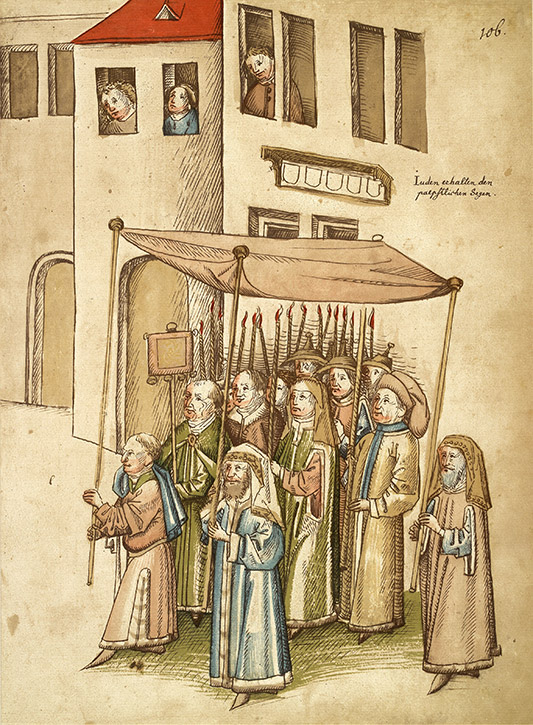 106.
Iuden erhalten den
paepſtlichen Segen.